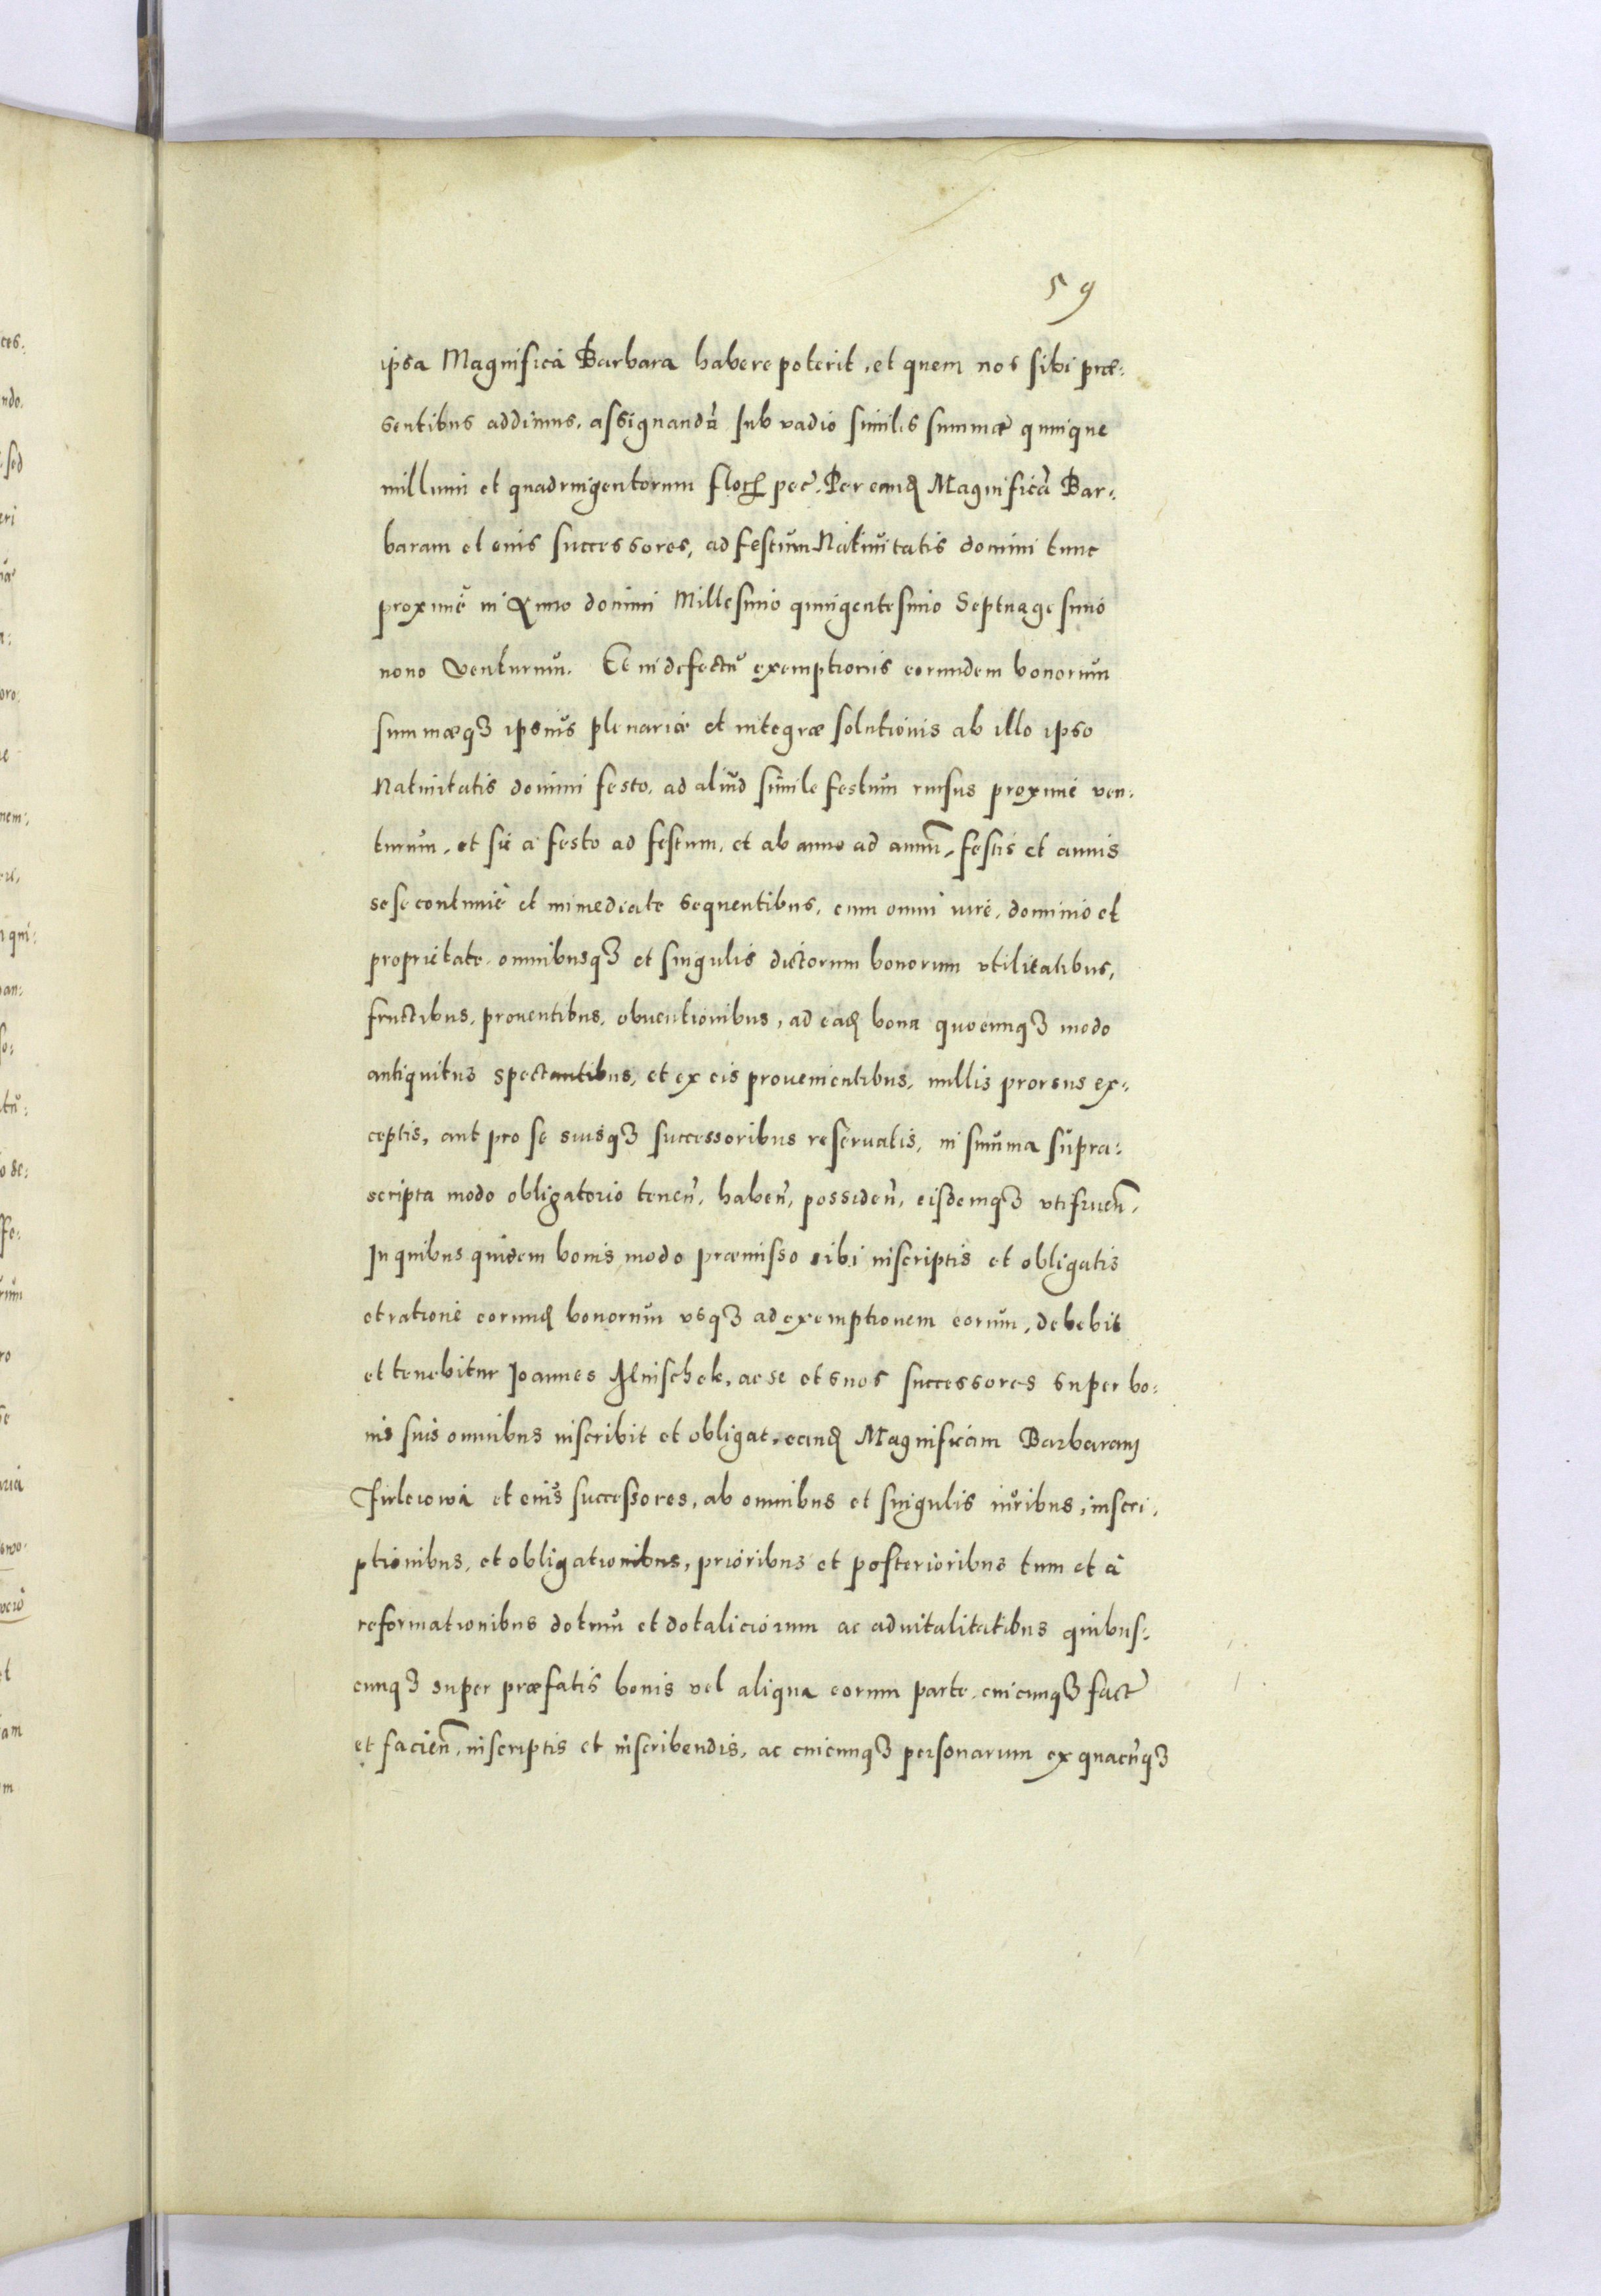 59
ipsa Magnifica Barbara habere poterit, et quem nos sibi præ:
sentibus addimus, assignandoꝝ sub vadio similis summæ quinque
millium et quadringentorum floꝝ pec̃. Per eandꝭ Magnificā Bar:
baram et eius successores, ad festum Natiuitatis domini tunc
proximè in Anno domini Millesimo quingentesimo Septuagesimo
nono Venturum. Et in defectu exemptionis eorundem bonorum
summæqꝫ ipsius plenariæ et integræ solutionis ab illo ipso
Natiuitatis domini festo, ad aliud simile festum rursus proximè ven:
turum, et sic à festo ad festum, et ab anno ad annū, festis et annis
sese continuè et immediate sequentibus, cum omni iure, dominio et
proprietate, omnibusqꝫ et singulis dictorum bonorum vtilitatibus,
fructibus, prouentibus, obuentionibus, ad eadꝭ bona quocunqꝫ modo
antiquitus spectantibus, et ex eis prouenientibus, nullis prorsus ex:
ceptis, aut pro se suisqꝫ successoribus reseruatis, in summa supra:
scripta modo obligatorio tenen̄, haben̄, possiden̄, eisdemqꝫ vtifruen̄,
In quibus quidem bonis modo præmisso sibi inscriptis et obligatis
et ratione eorundꝭ bonorum vsqꝫ ad exemptionem eorum, debebit
et tenebitur Ioannes, ac se et suos successores super bo:
nis suis omnibus inscribit et obligat, eandꝭ Magnificam Barbaram
Firleiowa et eius successores, ab omnibus et singulis iuribus, inscri:
ptionibus, et obligationibus, prioribus et posterioribus tum et à
reformationibus dotium et dotaliciorum ac aduitalitatibus quibus:
cunqꝫ super præfatis bonis vel aliqua eorum parte, cuicunqꝫ fact̃
et facien̄, inscriptis et inscribendis, ac cuicunqꝫ personarum ex quacūqꝫ